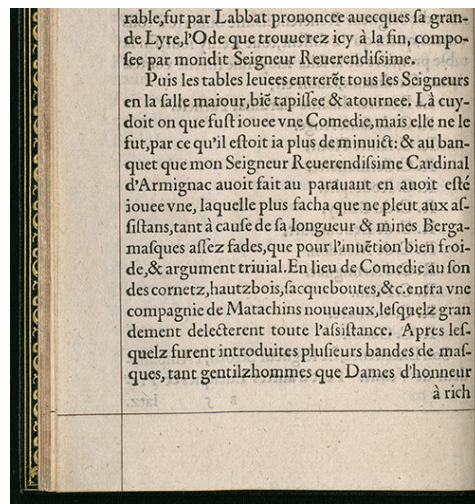 rable,fut par Labbat prononcee auecques ſa gran-
de Lyre,l'Ode que trouuerez icy à la fin, compo-
ſee par mondit Seigneur Reuerendiſsime.
Puis les tables leuees entrerẽt tous les Seigneurs
en la ſalle maiour,biẽ tapiſſee & atournee. Là cuy-
doit on que fuſt iouee vne Comedie,mais elle ne le
fut,par ce qu'il eſtoit ia plus de minuict: & au ban-
quet que mon Seigneur Reuerendiſsime Cardinal
d'Armignac auoit fait au parauant en auoit eſté
iouee vne, laquelle plus facha que ne pleut aux aſ-
ſiſtans,tant à cauſe de ſa longueur & mines Berga-
maſques aſſez fades,que pour l'inuẽtion bien froi-
de,& argument triuial.En lieu de Comedie au ſon
des cornetz,hautzbois,ſacqueboutes,&c.entra vne
compagnie de Matachins nouueaux,leſquelz gran
dement delecterent toute l'aſsiſtance. Apres leſ-
quelz furent introduites pluſieurs bandes de maſ-
ques, tant gentilzhommes que Dames d'honneur
à rich